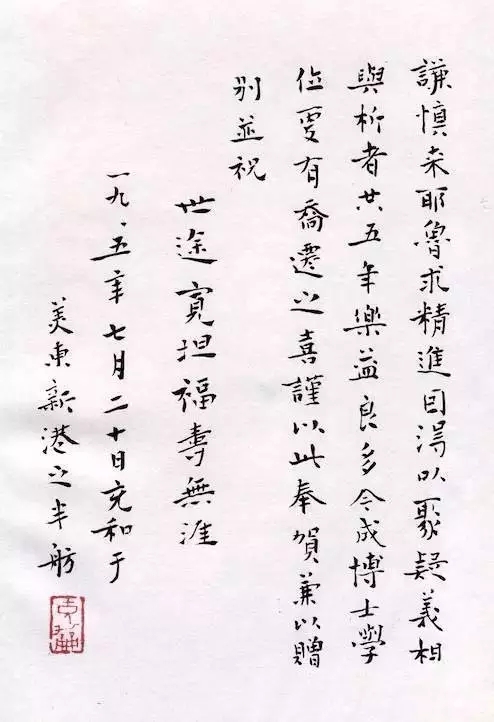 謙慎来耶魯求精進因得以聚疑義相
與析者共五年樂益良多今成博士學
位更有喬遷之喜謹以此奉賀兼以贈
別並祝
世途寬坦福壽無涯
一九、五年七月二十日充和于
美東新港之半舫